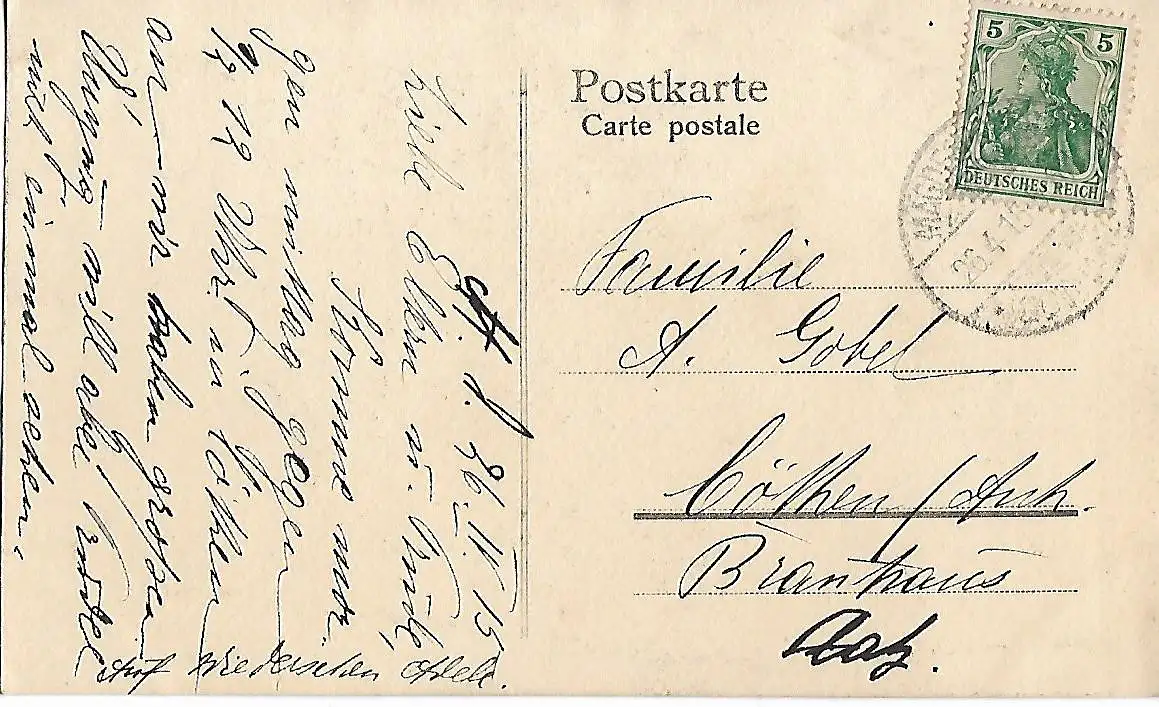 Postkarte
Carte postale
5 5
DEUTSCHES REICH
26.4.15
Familie
A. Gobel
Cöthen / Anh.
Branhaus
d. 26. IV. 15
Liebe Eltern u.
Komme mor
gen mittag gegen
1/2 12 Uhr in Cöthen
an mir haben grossen
will abe
mich einmal sehen.
Auf Wiedersehen Adele.